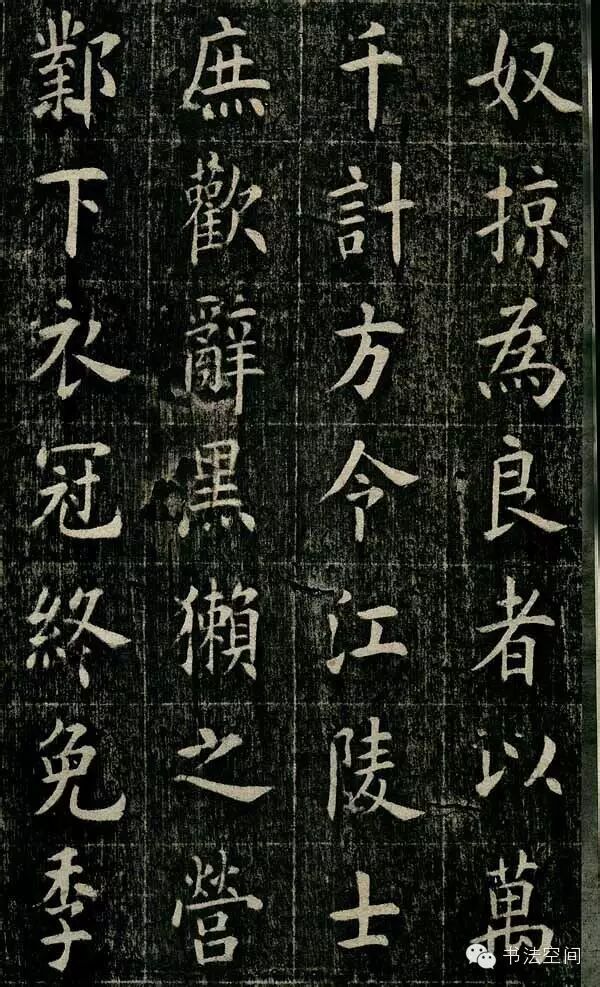 奴掠為良者以萬
千計方令江陵士
庶歡辭黑獺之營
鄴下衣冠終免季
书法空间